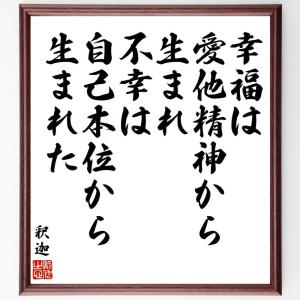 幸福は
愛他精神から
生まれ
不幸は
自己本位から
生まれた
釈迦